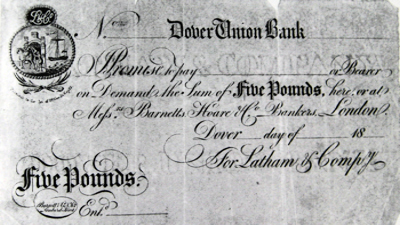 L&Co.
No. Dover Union Bank
I Promise to pay or Bearer
on Demand the Sum of Five Pounds, here, or at
Messrs. Barnetts Hoare & Co. Bankers, London.
Dover day of 18
For Latham, & Compy.
Five Pounds.
Entd.